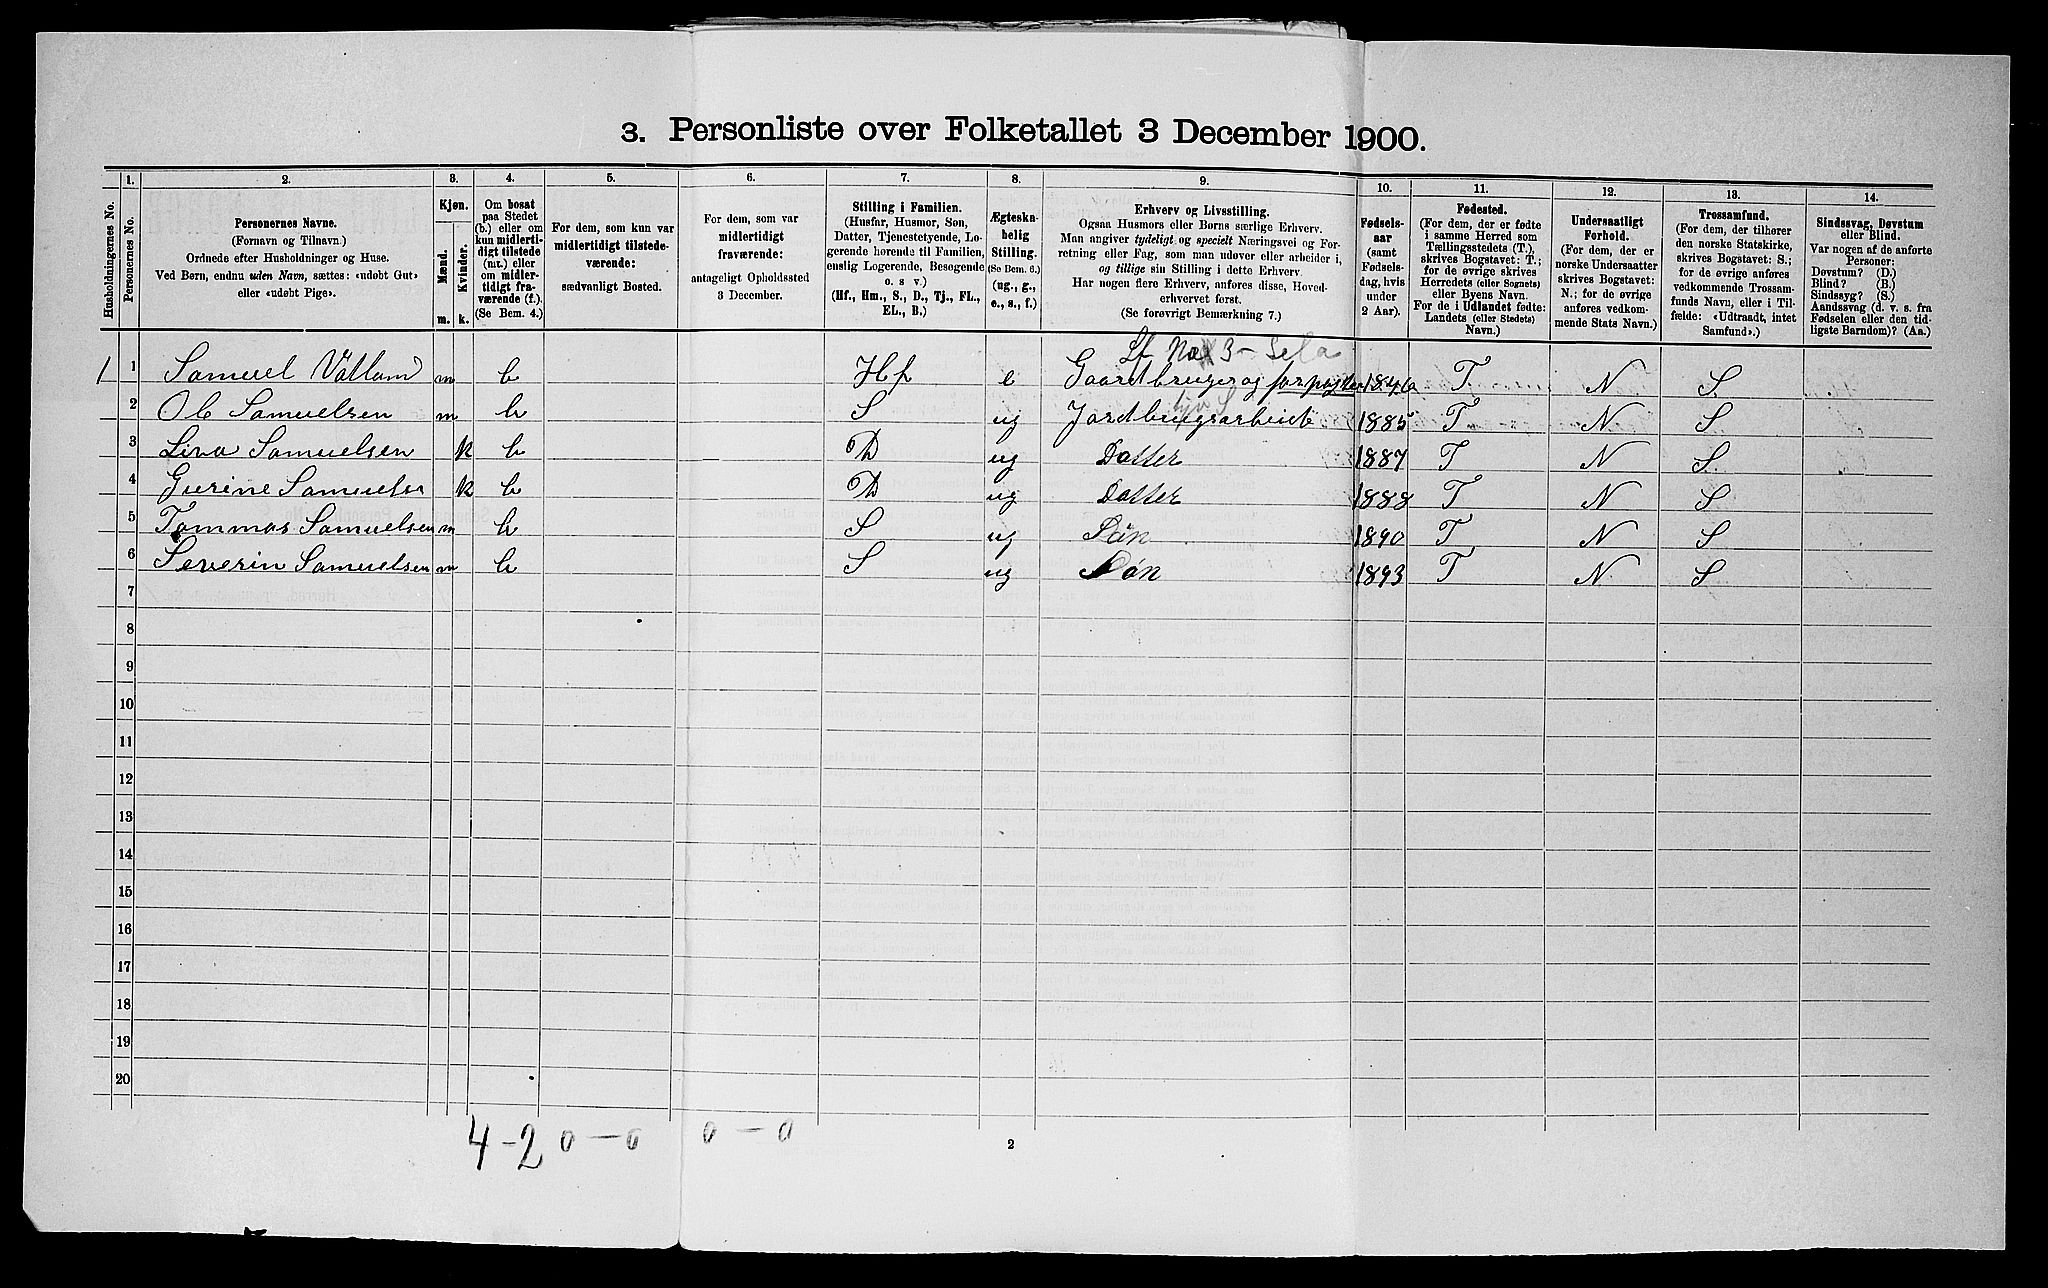 3. Personliste over Folketallet 3 December 1900.
1. 2. 3. 4. 5. 6. 7. 8. 9. 10. 11. 12. 13. 14.
Husholdningernes No.
Personernes No.
Personernes Navne.
(Fornavn og Tilnavn.)
Ordnede efter Husholdninger og Huse.
Ved Børn, endnu uden Navn, sættes: «udøbt Gut»
eller «udøbt Pige».
Kjøn.
Mænd.
Kvinder.
m. k.
Om bosat
paa Stedet
(b.) eller om
kun midlerti-
digt tilstede
(mt.) eller
om midler-
tidigt fra-
værende (f.).
(Se Bem. 4.)
For dem, som kun var
midlertidigt tilstede-
værende:
sædvanligt Bosted.
For dem, som var
midlertidigt
fraværende:
antageligt Opholdssted
3 December.
Stilling i Familien.
(Husfar, Husmor, Søn,
Datter, Tjenestetyende, Lo-
gerende hørende til Familien,
enslig Logerende, Besøgende
o. s v.)
(Hf., Hm., S., D., Tj., FL.,
EL., B.)
Ægteska-
belig
Stilling.
(Se Bem. 6.)
(ug., g.,
e., s., f.)
Erhverv og Livsstilling.
Ogsaa Husmors eller Børns særlige Erhverv.
Man angiver tydeligt og specielt Næringsvei og For-
retning eller Fag, som man udøver eller arbeider i,
og tillige sin Stilling i dette Erhverv.
Har nogen flere Erhverv, anføres disse, Hoved-
erhvervet først.
(Se forøvrigt Bemærkning 7.)
Fødsels-
aar
(samt
Fødsels-
dag, hvis
under
2 Aar).
Fødested.
(For dem, der er fødte
i samme Herred som
Tællingsstedets (T.),
skrives Bogstavet: T.;
for de øvrige skrives
Herredets (eller Sognets)
eller Byens Navn.
For de i Udlandet fødte:
Landets (eller Stedets)
Navn.)
Undersaatligt
Forhold.
(For dem, der er
norske Undersaatter
skrives Bogstavet:
N.; for de øvrige
anføres vedkom-
mende Stats Navn.)
Trossamfund.
(For dem, der tilhører
den norske Statskirke,
skrives Bogstavet: S.;
for de øvrige anføres
vedkommende Trossam-
funds Navn, eller i Til-
fælde: «Udtraadt, intet
Samfund».)
Sindssvag, Døvstum
eller Blind.
Var nogen af de anførte
Personer:
Døvstum? (D.)
Blind? (B.)
Sindssyg? (S.)
Aandssvag (d. v. s. fra
Fødselen eller den tid-
ligste Barndom)? (Aa.)
1 1 Samuel Vatland m b Hf e Gaardbruger og 1846 T N S
2 Ole Samuelsen m b S ug Jordbrugsarbeide 1885 T N S
3 Lina Samuelsen k b D ug Datter 1887 T N S
4 Gurine Samuelse k b D ug Datter 1888 T N S
5 Tommas Samuelsen m b S ug Søn 1890 T N S
6 Severin Samuelsen m b S ug Søn 1893 T N S
7
8
9
10
11
12
13
14
15
16
17
18
19
20
4 - 2 0 - 0 0 - 0
2